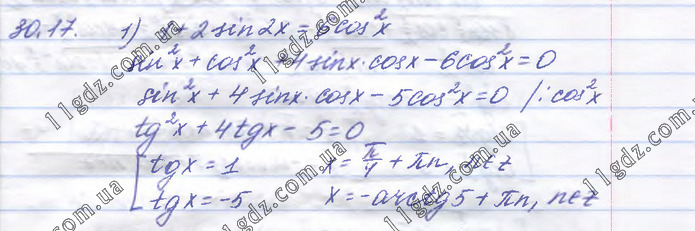 30.17. 1) 1+2sin2x=6cos²x
sin²x+cos²x+4sinx·cosx-6cos²x=0
sin²x+4sinx·cosx-5cos²x=0 /:cos²x
tg²x+4tgx-5=0
[tgx=1 x=π/4+πn, n∈z
[tgx=-5 x=-arctg5+πn, n∈z
11gdz.com.ua
11gdz.com.ua
11gdz.com.ua
11gdz.com.ua
11gdz.com.ua